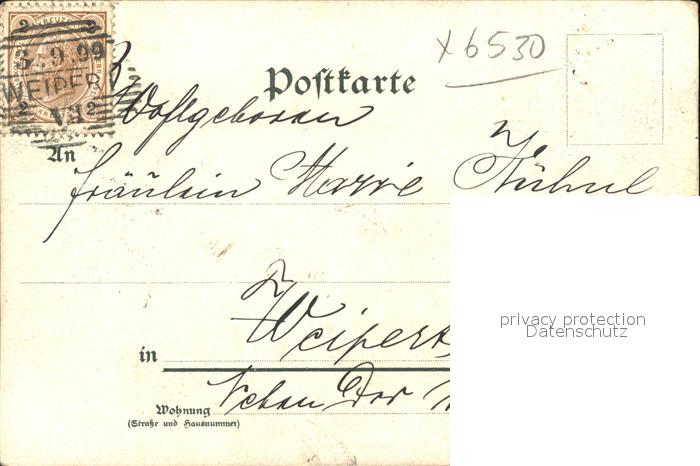 2 KREUZER 2
5.9.99
WEIPERT
2 2
x 6530
Postkarte
Wohlgeboren
An
Fräulein Marie Kühnel
privacy protection
Datenschutz
in Weipert
Wohnung Neben Der
(Straße und Hausnummer)